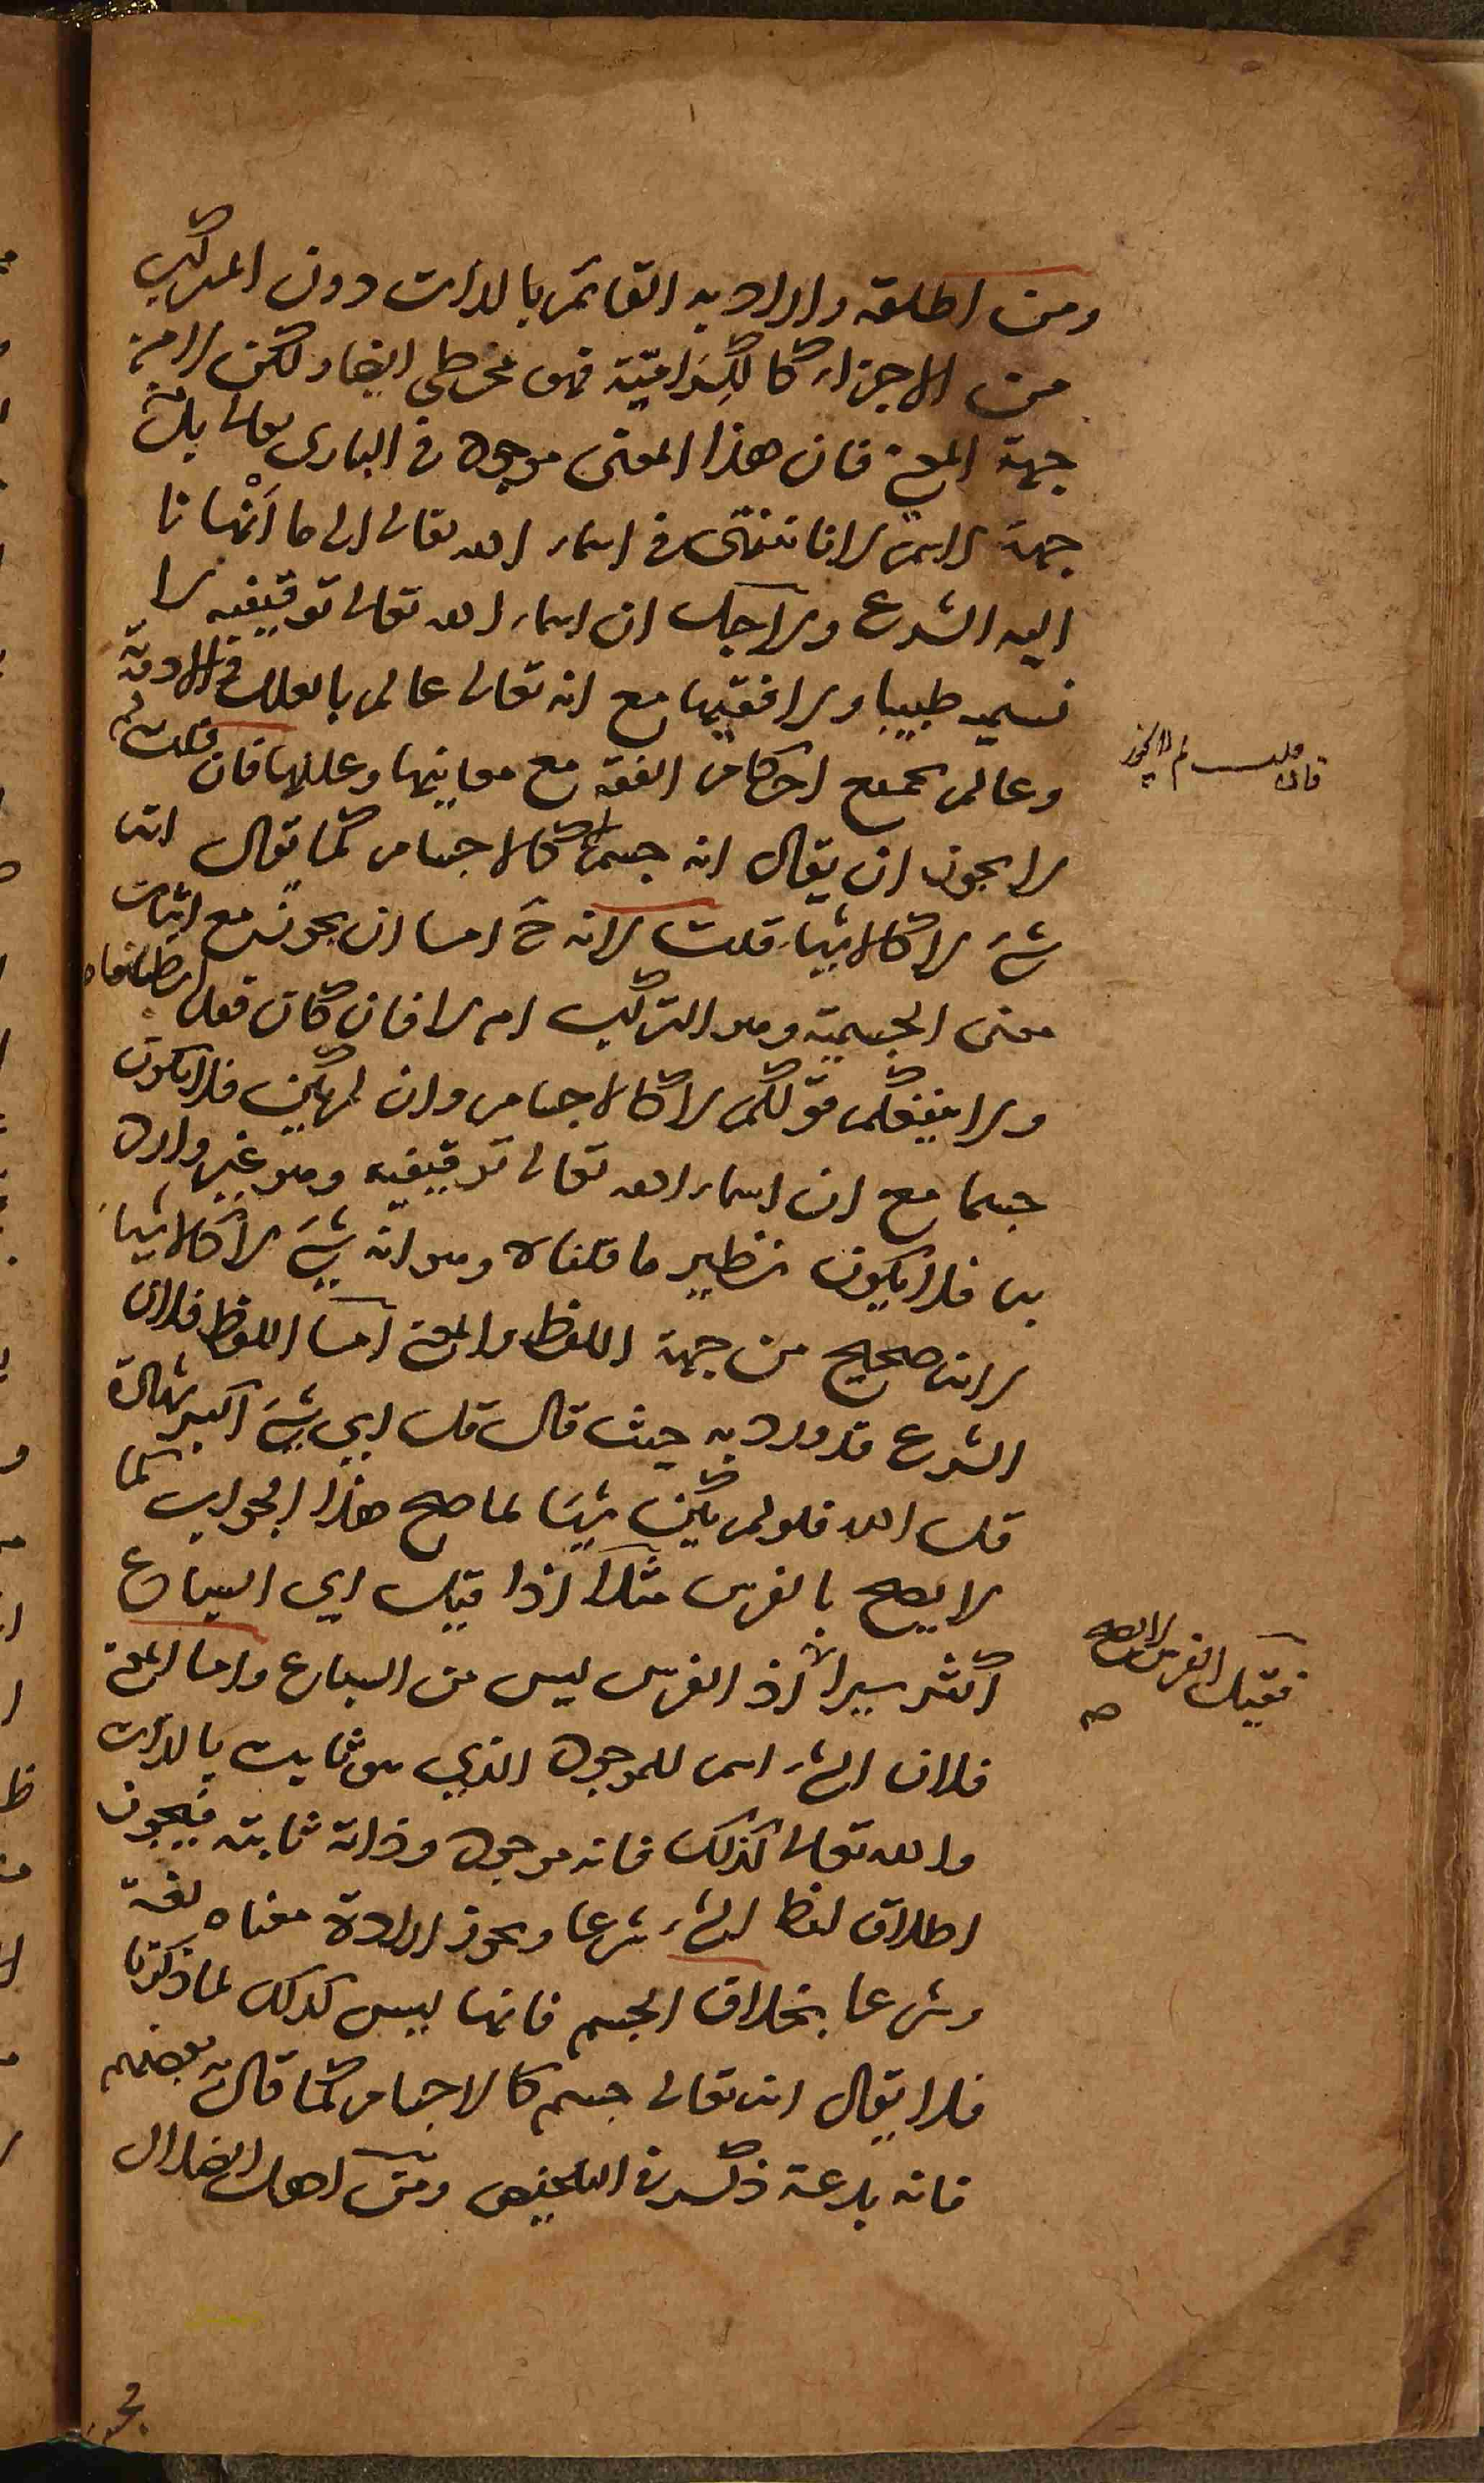 ومن اطلقه واراد به القائم بالذات دون المركب
من الاجزاء كالكرامية فهو مخطئ ايضا ولكن لا من
جهة المعنى فان هذا المعنى موجود في البارى تعالى بل من
جهة الاسم لانا ننتهى في اسماء الله تعالى الى ما انهانا
اليه الشرع ولاجل ان اسماء الله تعالى توقيفيه لا
نسميه طبيبا ولا فقيها مع انه تعالى عالم بالعلل والادوية
وعالم بجميع احكام الفقه مع معانيها وعللها فان قلت لم
لا يجوز ان يقال انه جسم لا كالاجسام كما يقال انه
شئ لا كالاشياء قلت لانه ح اما ان يجوز مع اثبات
معنى الجسمية وهو التركيب ام لا فان كان فعل
ولا ينفعكم قولكم لا كالاجسام وان لم يكن فلا يكون
جسما مع ان اسماء الله تعالى توقيفيه وهو غير وارد
بها فلا يكون نظير ما قلناه وهو انه شئ لا كالاشياء
لانه صحيح من جهة اللفظ والمعنى اما اللفظ فلان
الشرع قد ورد به حيث قال قل اي شئ اكبر شهادة
قل الله فلو لم يكن شيئا لما صح هذا الجواب كما
لا يصح بالفرس مثلا اذا قيل اي السباع
اكثر سيرا اذ الفرس ليس من السباع واما المعنى
فلان الشئ اسم للموجود الذي هو ثابت بالذات
والله تعالى كذلك فانه موجود وذاته ثابته فيجوز
اطلاق لفظ الشئ شرعا ويجوز ارادة معناه لغة
وشرعا بخلاف الجسم فانها ليس كذلك لما ذكرنا
فلا يقال انه تعالى جسم كالاجسام كما قال به بعضهم
فانه بدعة ذكره في التلخيص ومن اهل الضلال
فان قلت لم لا يجوز
فقيل الفرس لا يصح
صح